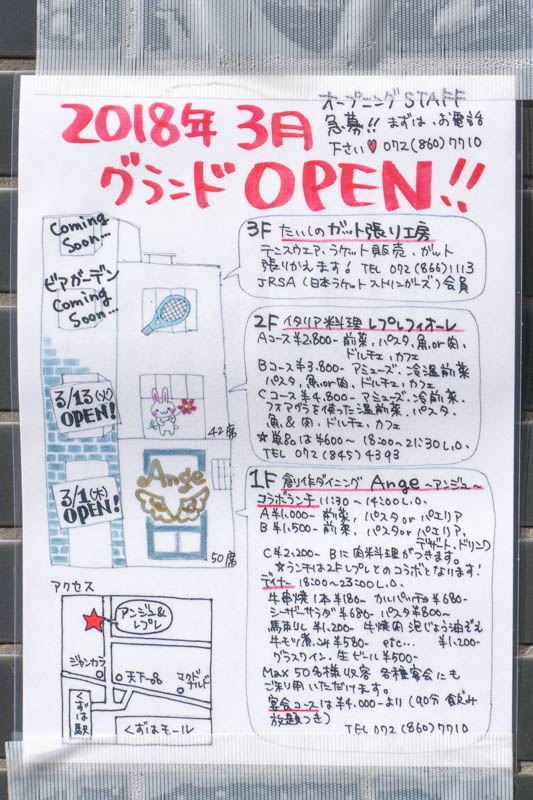 オープニングSTAFF
急募!! まずは、お電話
下さい♥ 072(860)7710
2018年 3月
グランド OPEN!!
Coming
Soon...
ビアガーデン
Coming
Soon...
3/13(火)
OPEN!
42席
3/1(木)
OPEN!
Ange
50席
3F たいしのガット張り工房
テニスウエア、ラケット販売、ガット
張りかえます! TEL 072(866)1113
JRSA (日本ラケットストリンガーズ)会員
2F イタリア料理 レプレフィオーレ
Aコース¥2.800- 前菜、パスタ、魚or肉、
ドルチェ、カフェ
Bコース¥3.800- アミューズ、冷温前菜
パスタ、魚or肉、ドルチェ、カフェ
Cコース¥4.800- アミューズ、冷前菜、
フォアグラを使った温前菜、パスタ、
魚&肉、ドルチェ、カフェ
★単品は¥600〜 18:00〜21:30 L.O.
TEL 072(845)4393
1F 創作ダイニング Ange 〜アンジュ〜
コラボランチ 11:30〜14:00 L.O.
A¥1.000- 前菜、パスタorパエリア
B¥1.500- 前菜、パスタorパエリア、
デザート、ドリンク
C¥2.200- Bに肉料理がつきます。
★ランチは2Fレプレとのコラボとなります!
ディナー 18:00〜23:00 L.O.
牛串焼1本¥180- カルパッチョ¥680-
シーザーサラダ¥680- パスタ¥800〜
馬刺し¥1.200- 牛焼肉 泥じょう油ぞえ
牛モツ煮込み¥580- etc... ¥1.200-
グラスワイン、生ビール¥500-
Max 50名様収容 各種宴会にも
ご利用いただけます。
宴会コースは¥4.000-より(90分 飲み
放題つき)
TEL 072(860)7710
アクセス
アンジュ&
レプレ
ジャンカラ
天下一品
マクド
ナルド
くずは駅
くずはモール